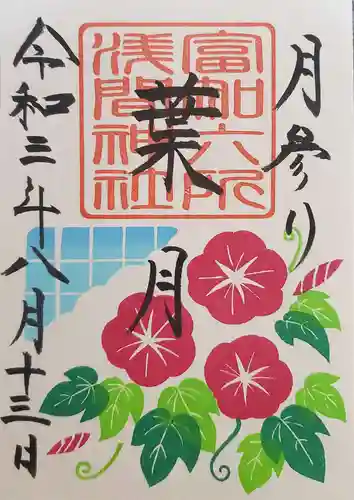 月参り
富知六所
浅間神社
葉月
令和三年八月十三日